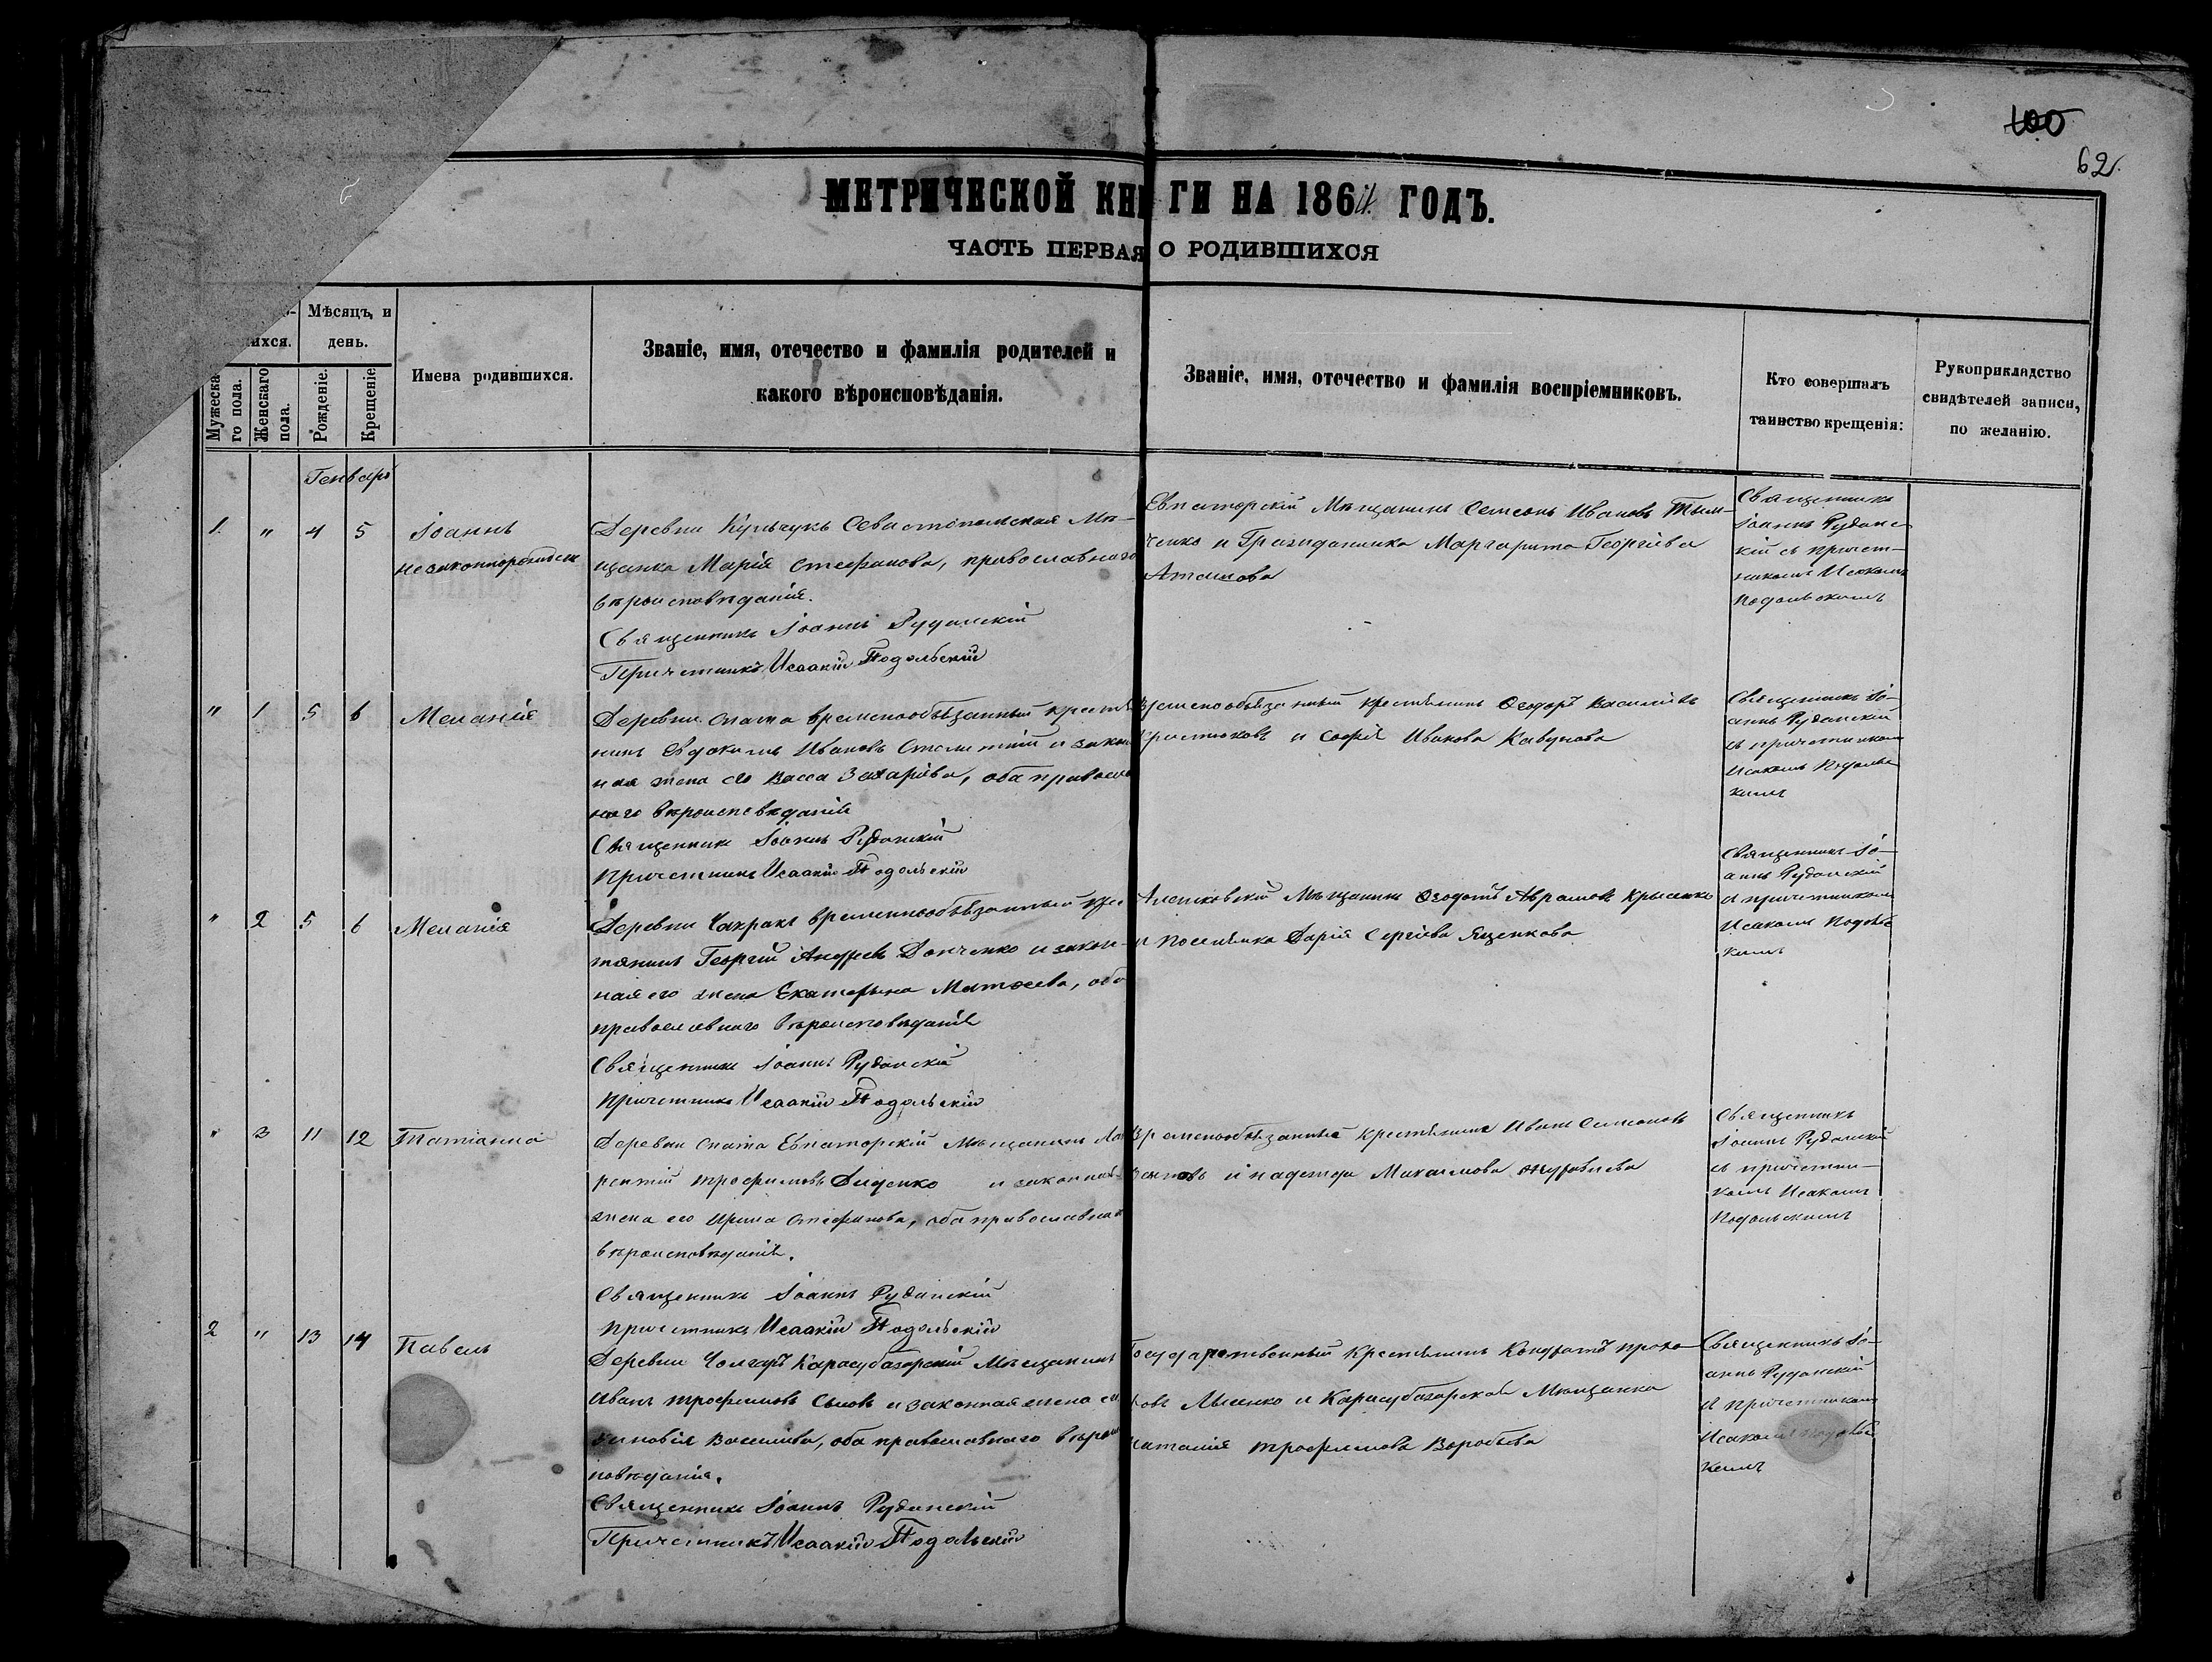 100
62.
МЕТРИЧЕСКОЙ КНИГИ НА 1864 ГОДЪ.
ЧАСТЬ ПЕРВАЯ О РОДИВШИХСЯ
Мѣсяцъ и
день.
Мужеска-
го пола.
Женскаго
пола.
Рожденіе.
Крещеніе
Имена родившихся.
Званіе, имя, отечество и фамилія родителей и
какого вѣроисповѣданія.
Званіе, имя, отечество и фамилія воспріемниковъ.
Кто совершалъ
таинство крещенія:
Рукоприкладство
свидѣтелей записи,
по желанію.
Генварь
1. " 4 5
Іоаннъ
незаконнорожден
Деревни Кульчукъ Севастопольская Мѣ-
щанка Марія Стефанова, православнаго
вѣроисповѣданія.
Священникъ Іоаннъ Руданскій
Причетникъ Исаакій Подольскій
Евпаторскій Мѣщанинъ Семеонъ Ивановъ Тым-
ченко и Гражданика Маргарита Георгіева
Священникъ
Іоаннъ Руданс
кій съ причет-
никомъ Исакомъ
Подольскимъ
" 1 5 6
Меланія
Деревни Спата временнообязанный крестья
нинъ Евдокимъ Ивановъ и закон
ная жена его Васса Захаріева, оба правосла
наго вѣроисповѣданія
Священникъ Іоаннъ Руданскій
Причетникъ Исаакій Подольскій
Временнообязанный крестьянинъ Ѳеодоръ Васильевъ
и Софія Иванова Кавунова
Священникъ Іо-
аннъ Руданскій
съ причетникомъ
Исакомъ Подольс
кимъ
" 2 5 6
Меланія
Деревни Чакракъ временнообязанный крес
тянинъ Георгій Андреевъ Донченко и закон-
ная его жена Екатерина Матѳеева, оба
православнаго вѣроисповѣданія
Священникъ Іоаннъ Руданскій
Причетникъ Исаакій Подольскій
Алешковскій Мѣщанинъ Ѳеодотъ Аврамовъ Крысенко
и Поселянка Дарія Сергіева Яценкова
Священникъ Іо-
аннъ Руданскій
съ причетникомъ
Исакомъ Подольс
кимъ
" 3 11 12
Татіанна
Деревни Спата Евпаторскій Мѣщанинъ Лав
рентій Трофимовъ Диденко и законная
жена его Ирина Стефанова, оба православнаг
вѣроисповѣданія.
Священникъ Іоаннъ Руданскій
Причетникъ Исаакій Подольскій
Временнообязанный крестьянинъ Иванъ Семеоновъ
и Надежда Михаилова Журавлева
Священникъ
Іоаннъ Руданскій
съ причетни-
комъ Исакомъ
Подольскимъ
2 " 13 14
Павелъ
Деревни Чонгаръ Карасубазарскій Мѣщанинъ
Иванъ Трофимовъ и законная жена его
Зиновія Василіева, оба православнаго вѣроис
повѣданія.
Священникъ Іоаннъ Руданскій
Причетникъ Исаакій Подольскій
Государственный крестьянинъ Кондратъ Проко
Лысенко и Карасубазарская Мѣщанка
Наталія Трофимова Воробьева
Священникъ Іо-
аннъ Руданскій
съ причетникомъ
Исакомъ Подольс
кимъ